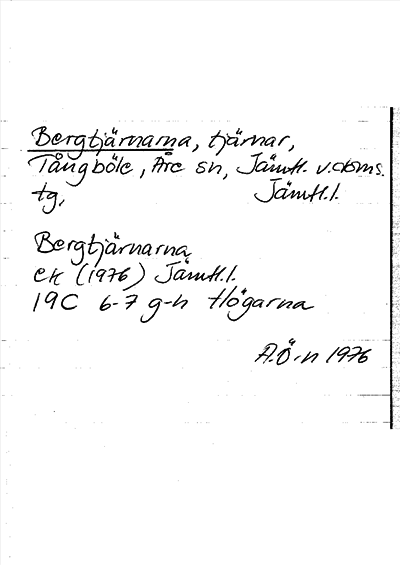 Bergtjärnarna, tjärnar,
Tångböle, Åre sn, Jämtl. v. doms.
tg, Jämtl. l.
Bergtjärnarna
ek (1976) Jämtl. l.
19C 6-7 g-h Högarna
A.Ö-n 1976